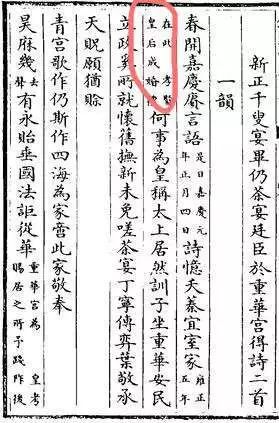 新正千叟宴畢仍茶宴廷臣於重華宮得詩二首
一韻
春開嘉慶賡言語是日嘉慶元年正月四日詩憶夭蓁宜室家雍正五年
在此孝賢皇后成婚何事為皇稱太上居然訓子坐重華安民
立政奚所就懷舊撫新未免嗟茶宴丁寧傳奕葉敬承
天貺願猶賒
青宮歌作仍斯作四海為家嘗此家敬奉
昊庥幾去聲有永貽垂國法詎從華重華宮為皇考賜居之所予踐阼後